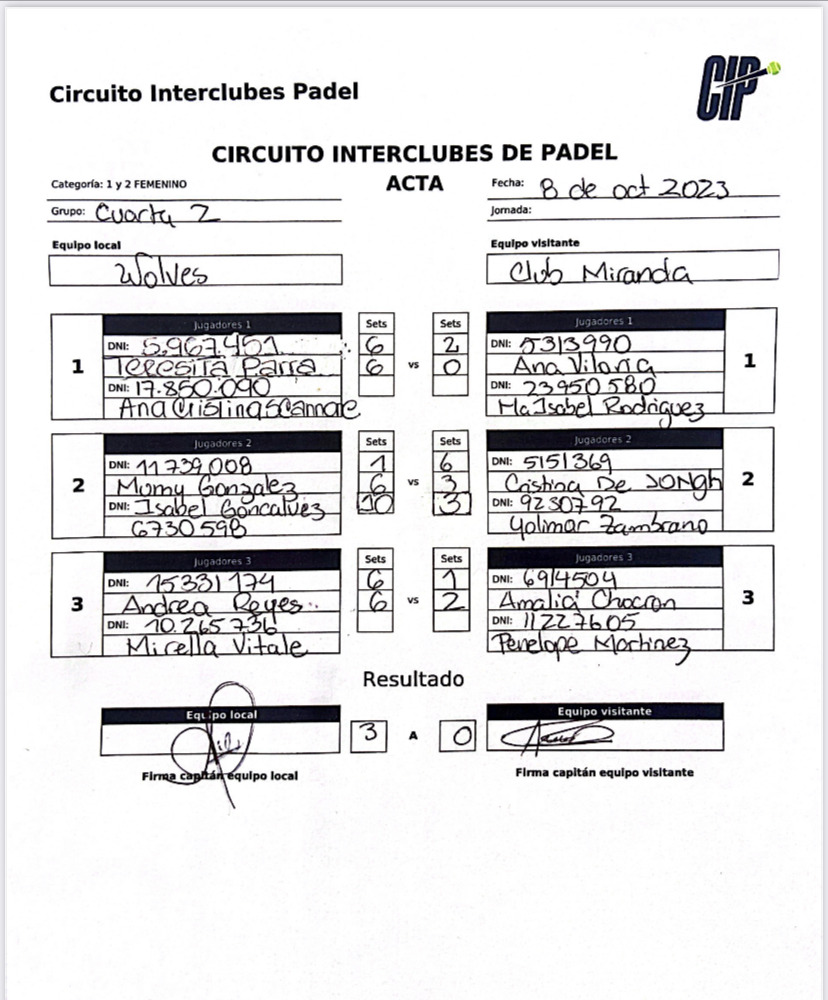 Circuito Interclubes Padel
CIP
CIRCUITO INTERCLUBES DE PADEL
Categoría: 1 y 2 FEMENINO
ACTA
Fecha: 8 de oct 2023
Grupo: Cuarta 2
Jornada:
Equipo local
Equipo visitante
Wolves
Club Miranda
Jugadores 1 Sets Sets Jugadores 1
DNI: 5.967.451 6 2 DNI: 5313990
1 Teresita Parra 6 vs 0 Ana Viloria 1
DNI: 17.850.090 DNI: 23950580
Ana Cristina Scannone Ma Isabel Rodriguez
Jugadores 2 Sets Sets Jugadores 2
DNI: 11739008 1 6 DNI: 5151369
2 Mumy Gonzalez 6 vs 3 Cristina De JONgh 2
DNI: Isabel Goncalvez 10 3 DNI: 9230792
6730598 Yolimar Zambrano
Jugadores 3 Sets Sets Jugadores 3
DNI: 15331174 6 1 DNI: 6914504
3 Andrea Reyes 6 vs 2 Amalia Chocron 3
DNI: 10.265736 DNI: 11227605
Mirella Vitale Penelope Martinez
Resultado
Equipo local Equipo visitante
3 A 0
Firma capitán equipo local Firma capitán equipo visitante